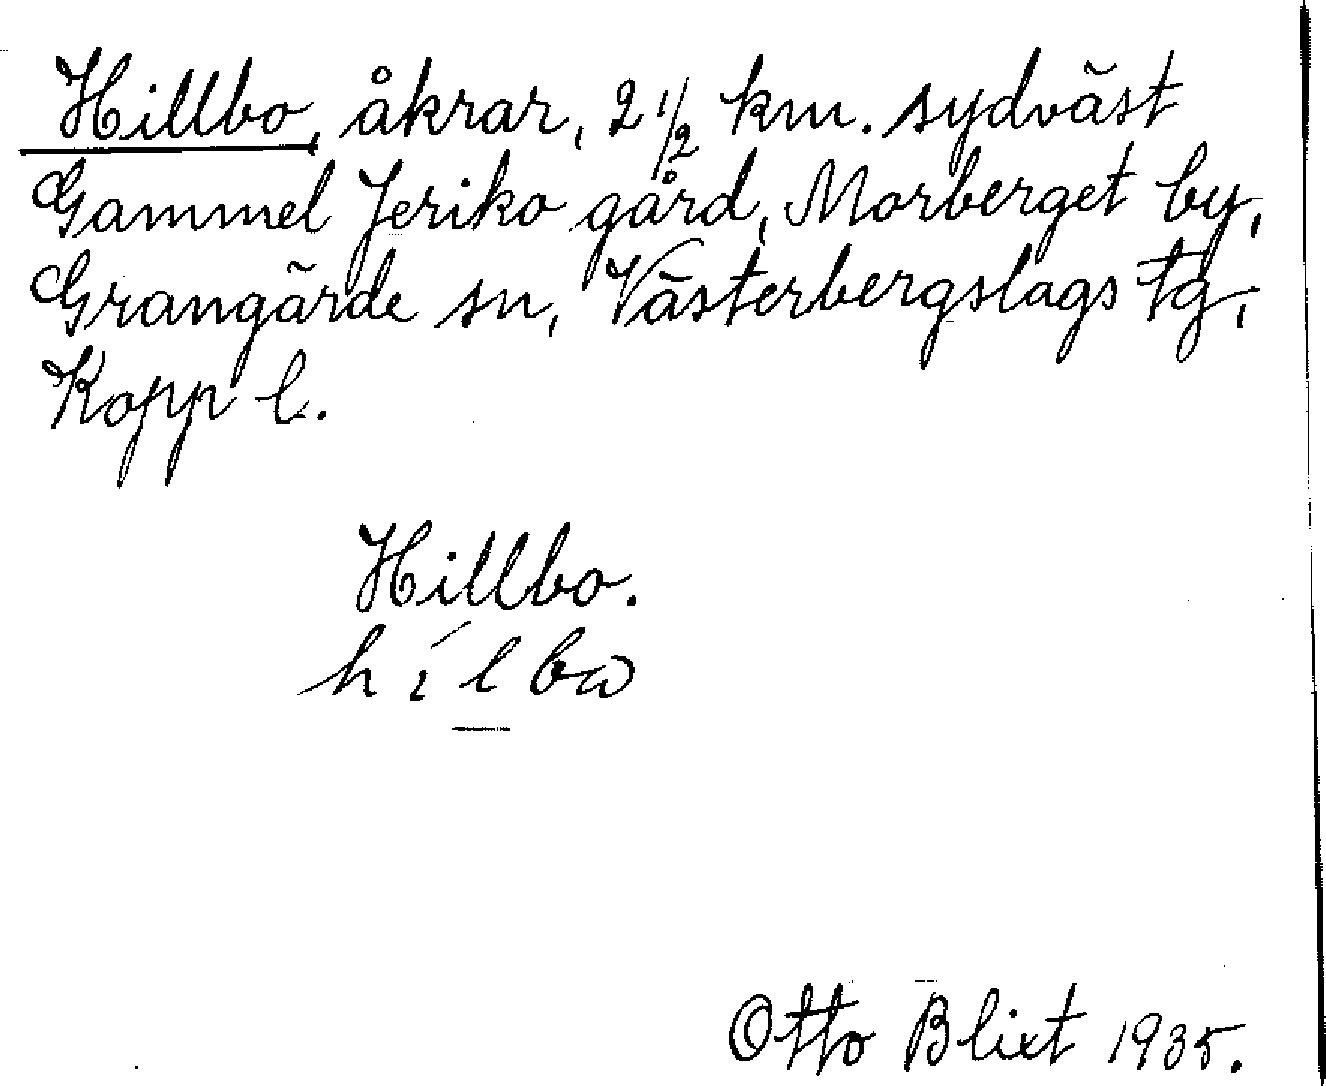 Hillbo, åkrar, 2 1/2 km. sydväst
Gammel Jeriko gård, Morberget by,
Grangärde sn, Västerbergslags tg,
Kopp l.
Hillbo.
hílbω
Otto Blixt 1935.